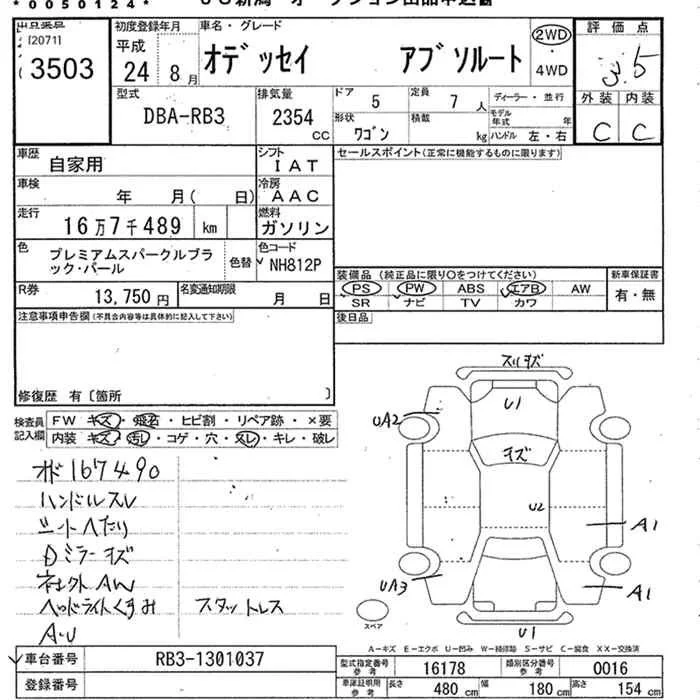 *0050124*
[20711]
3503
初度登録年月
平成
24 8月
車名・グレード
オデッセイ アブソルート
2WD
・
4WD
評価点
3.5
外装 内装
C C
型式
DBA-RB3
排気量
2354
CC
ドア
5
定員
7人
形状
ワゴン
積載
kg
ディーラー・並行
モデル年式 年
ハンドル 左・右
車歴
自家用
シフト
IAT
車検
年 月( 日)
冷房
AAC
走行
16万7千489 km
燃料
ガソリン
色
プレミアムスパークルブラ
ック・パール
色替
色コード
NH812P
R券
13,750円
名変通知期限
月 日
セールスポイント(正常に機能するものに限ります)
装備品(純正品に限り○をつけてください)
新車保証書
PS PW ABS エアB AW
SR ナビ TV カワ
有・無
後日品
注意事項申告欄(不具合内容等は具体的に記入して下さい)
修復歴 有〔箇所 〕
検査員
記入欄
FW キズ・飛石・ヒビ割・リペア跡・×要
内装 キズ・汚レ・コゲ・穴・スレ・キレ・破レ
オド167490
ハンドルスレ
シートへたり
Dミラーキズ
社外AW
ヘッドライトくすみ
スタットレス
A-U
スリキズ
U1
UA2
キズ
U2
A1
UA3
A1
U1
スペア
A-キズ E-エクボ U-凹み W-補修跡 S-サビ C-腐食 XX-交換済
車台番号
RB3-1301037
登録番号
型式指定番号
参考
16178
類別区分番号
参考
0016
車庫証明用
参考
長さ 480 cm
幅 180 cm
高さ 154 cm